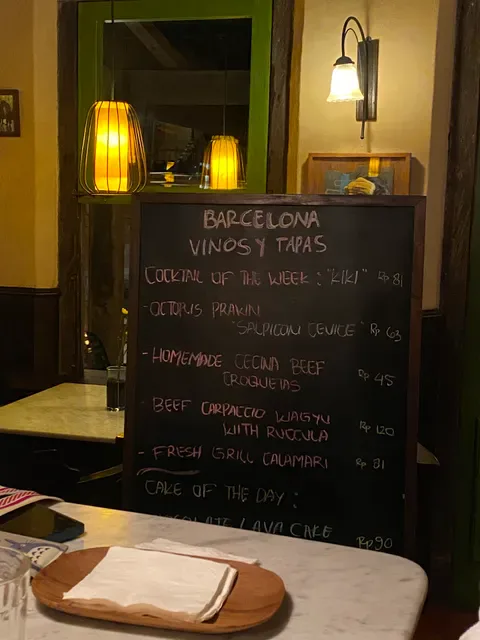 BARCELONA
VINOS Y TAPAS
COCKTAIL OF THE WEEK : "KIKI" Rp 81
- OCTOPUS PRAWN
"SALPICON CEVICE" Rp 63
- HOMEMADE CECINA BEEF
CROQUETAS Rp 45
- BEEF CARPACCIO WAGYU
WITH RUCCULA Rp 120
- FRESH GRILL CALAMARI Rp 81
CAKE OF THE DAY :
LAVA CAKE Rp 90